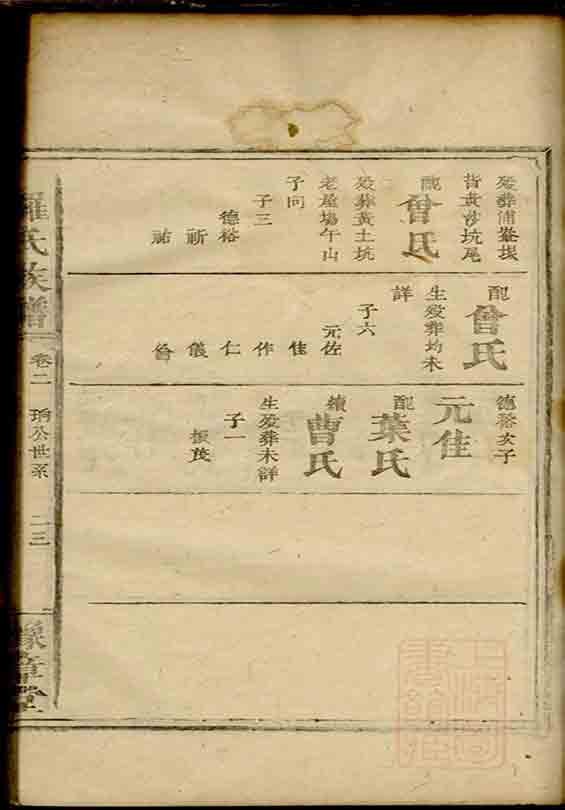 歿葬浦𡶶㙇
背黃沙坑尾
配
曾氏
歿葬黃土坑
老屋塲午山
子向
子三
德裕
祈
祐
配
曾氏
生歿葬均未
詳
子六
元佐
佳
作
仁
儀
德裕次子
元佳
配
葉氏
續
曹氏
生歿葬未詳
子一
振茂
羅氏族譜
卷二
公世系
二三
豫章堂